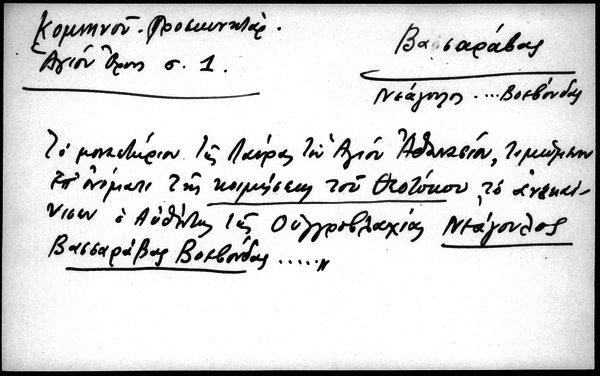 Κομνηνοῦ. Προσκυνητάρ.
Ἁγίου Ὄρους σ. 1.
Βασσαράβας
Νεάγουλος ... Βοεβόνδας
Τό μοναστήριον τῆς Λαύρας τοῦ Ἁγίου Ἀθανασίου, τιμώμενον
ἐπ' ὀνόματι τῆς κοιμήσεως τοῦ Θεοτόκου, τό ἀνεκαί-
νισεν ὁ Αὐθέντης τῆς Οὑγγροβλαχίας Νεάγουλος
Βασσαράβας Βοεβόνδας ....."